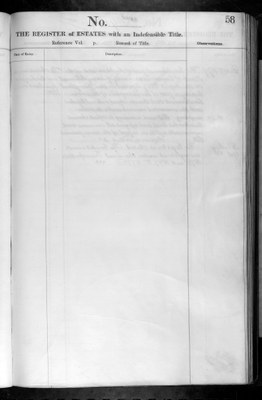 58
No.
THE REGISTER of ESTATES with an Indefeasible Title.
Reference Vol: p. Record of Title. Observations.
Description.